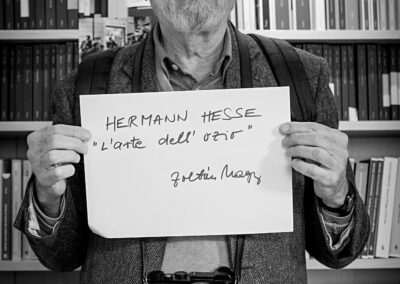 HERMANN HESSE
"L'arte dell' ozio"
Zoltán Nagy